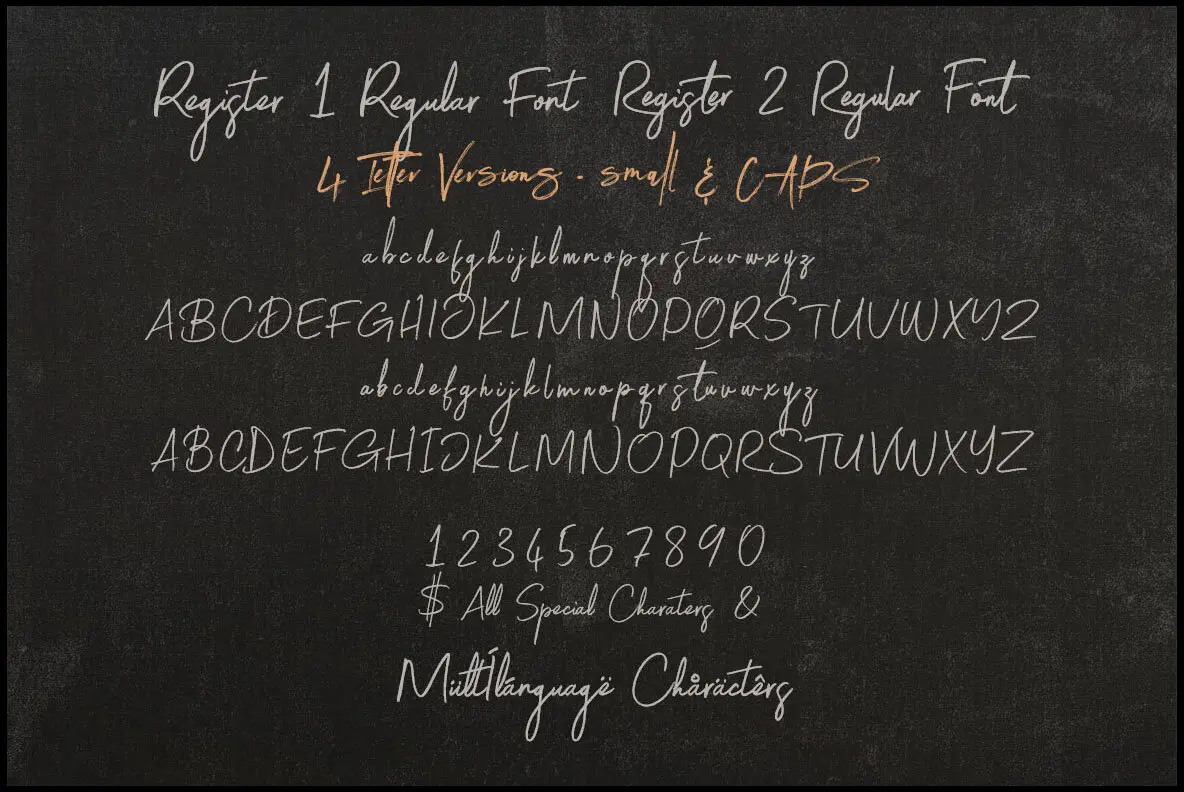 Register 1 Regular Font Register 2 Regular Font
4 letter Versions - small & CAPS
abcdefghijklmnopqrstuvwxyz
ABCDEFGHIJKLMNOPQRSTUVWXYZ
abcdefghijklmnopqrstuvwxyz
ABCDEFGHIJKLMNOPQRSTUVWXYZ
1234567890
$ All Special Charaters &
Mülltílánguagë Chåräctêrs